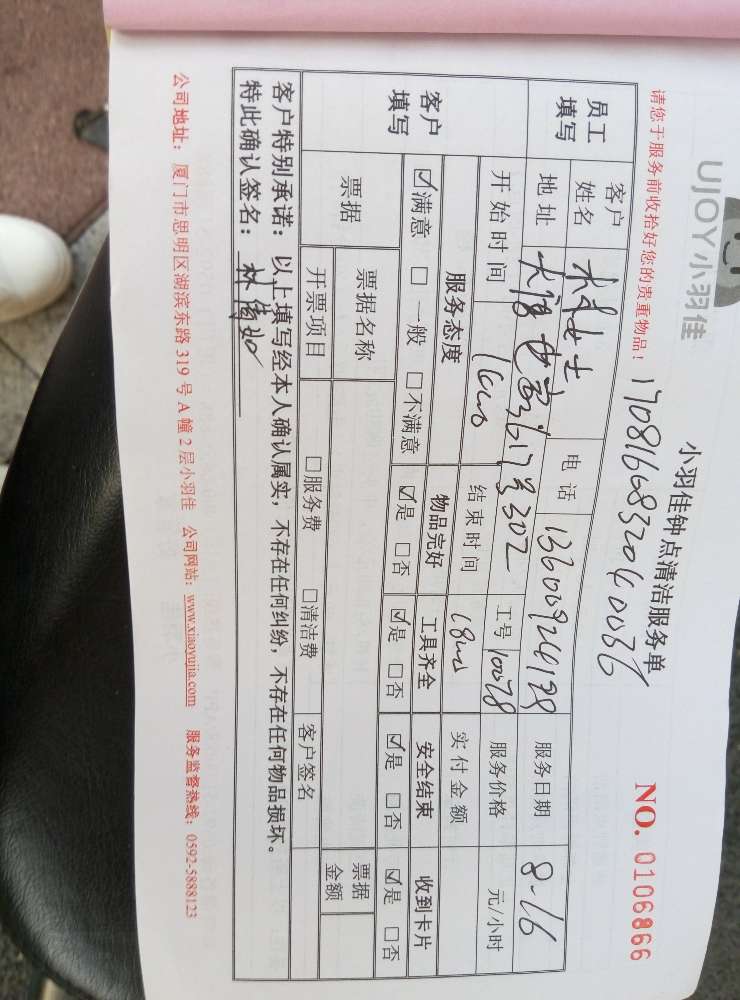 UJOY小羽佳
小羽佳钟点清洁服务单
NO. 0106866
请您于服务前收拾好您的贵重物品！
员工填写
客户姓名
电话
服务日期 8-16
地址 617号302
工号 10078
服务价格 元/小时
开始时间
结束时间
实付金额
客户填写
服务态度 物品完好 工具齐全 安全结束 收到卡片
☑满意 □一般 □不满意 ☑是 □否 ☑是 □否 ☑是 □否 ☑是 □否
票据
票据名称
票据金额
开票项目 □服务费 □清洁费 客户签名
客户特别承诺：以上填写经本人确认属实，不存在任何纠纷，不存在任何物品损坏。
特此确认签名：
公司地址：厦门市思明区湖滨东路 319 号 A 幢 2 层小羽佳 公司网站：www.xiaoyujia.com 服务监督热线：0592-5888123